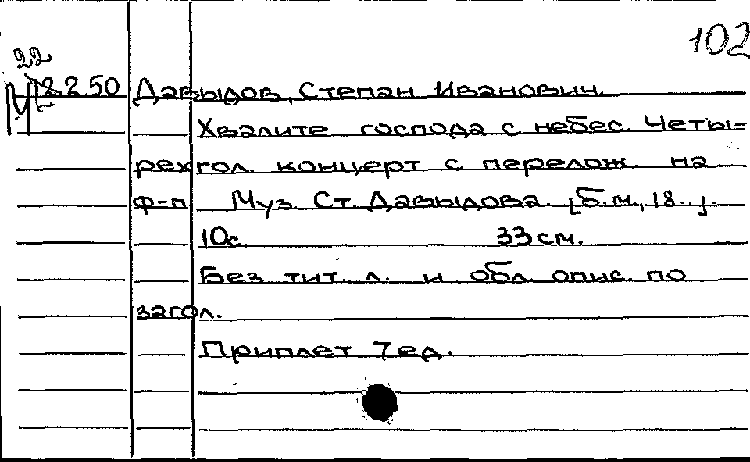 102
22
М 82.50 Давыдов, Степан Иванович.
Хвалите господа с небес. Четы=
рехгол. концерт с перелож. на
ф-п Муз. Ст. Давыдова. [Б.м., 18..].
10с. 33см.
Без тит. л. и обл. опис. по
загол.
Приплет 7 ед.